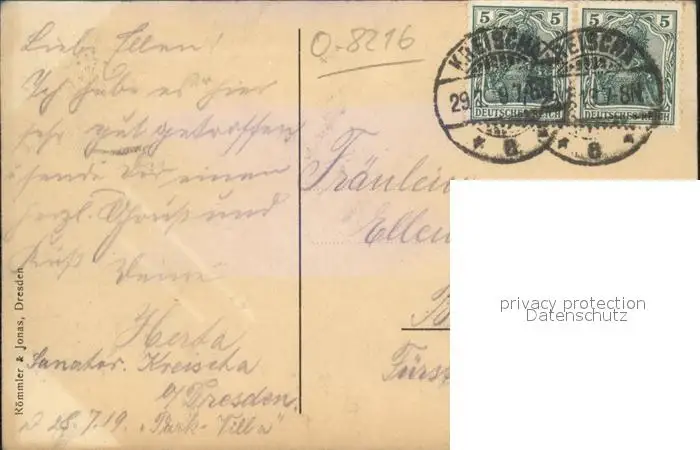 Liebe Ellen!
Ich habe es hier
sehr gut getroffen
sende Dir einen
herzl. Gruß und
Kuß Deine
Herta
Sanator. Kreischa
b/Dresden
d 28.7.19. "Park-Villa"
Römmler & Jonas, Dresden
Q-8216
5 5 5 5
KREISCHA KREISCHA
29.7
7-8N
DEUTSCHES REICH DEUTSCHES REICH
* a * * a *
Fräulein
Ellen
Fürst
privacy protection
Datenschutz